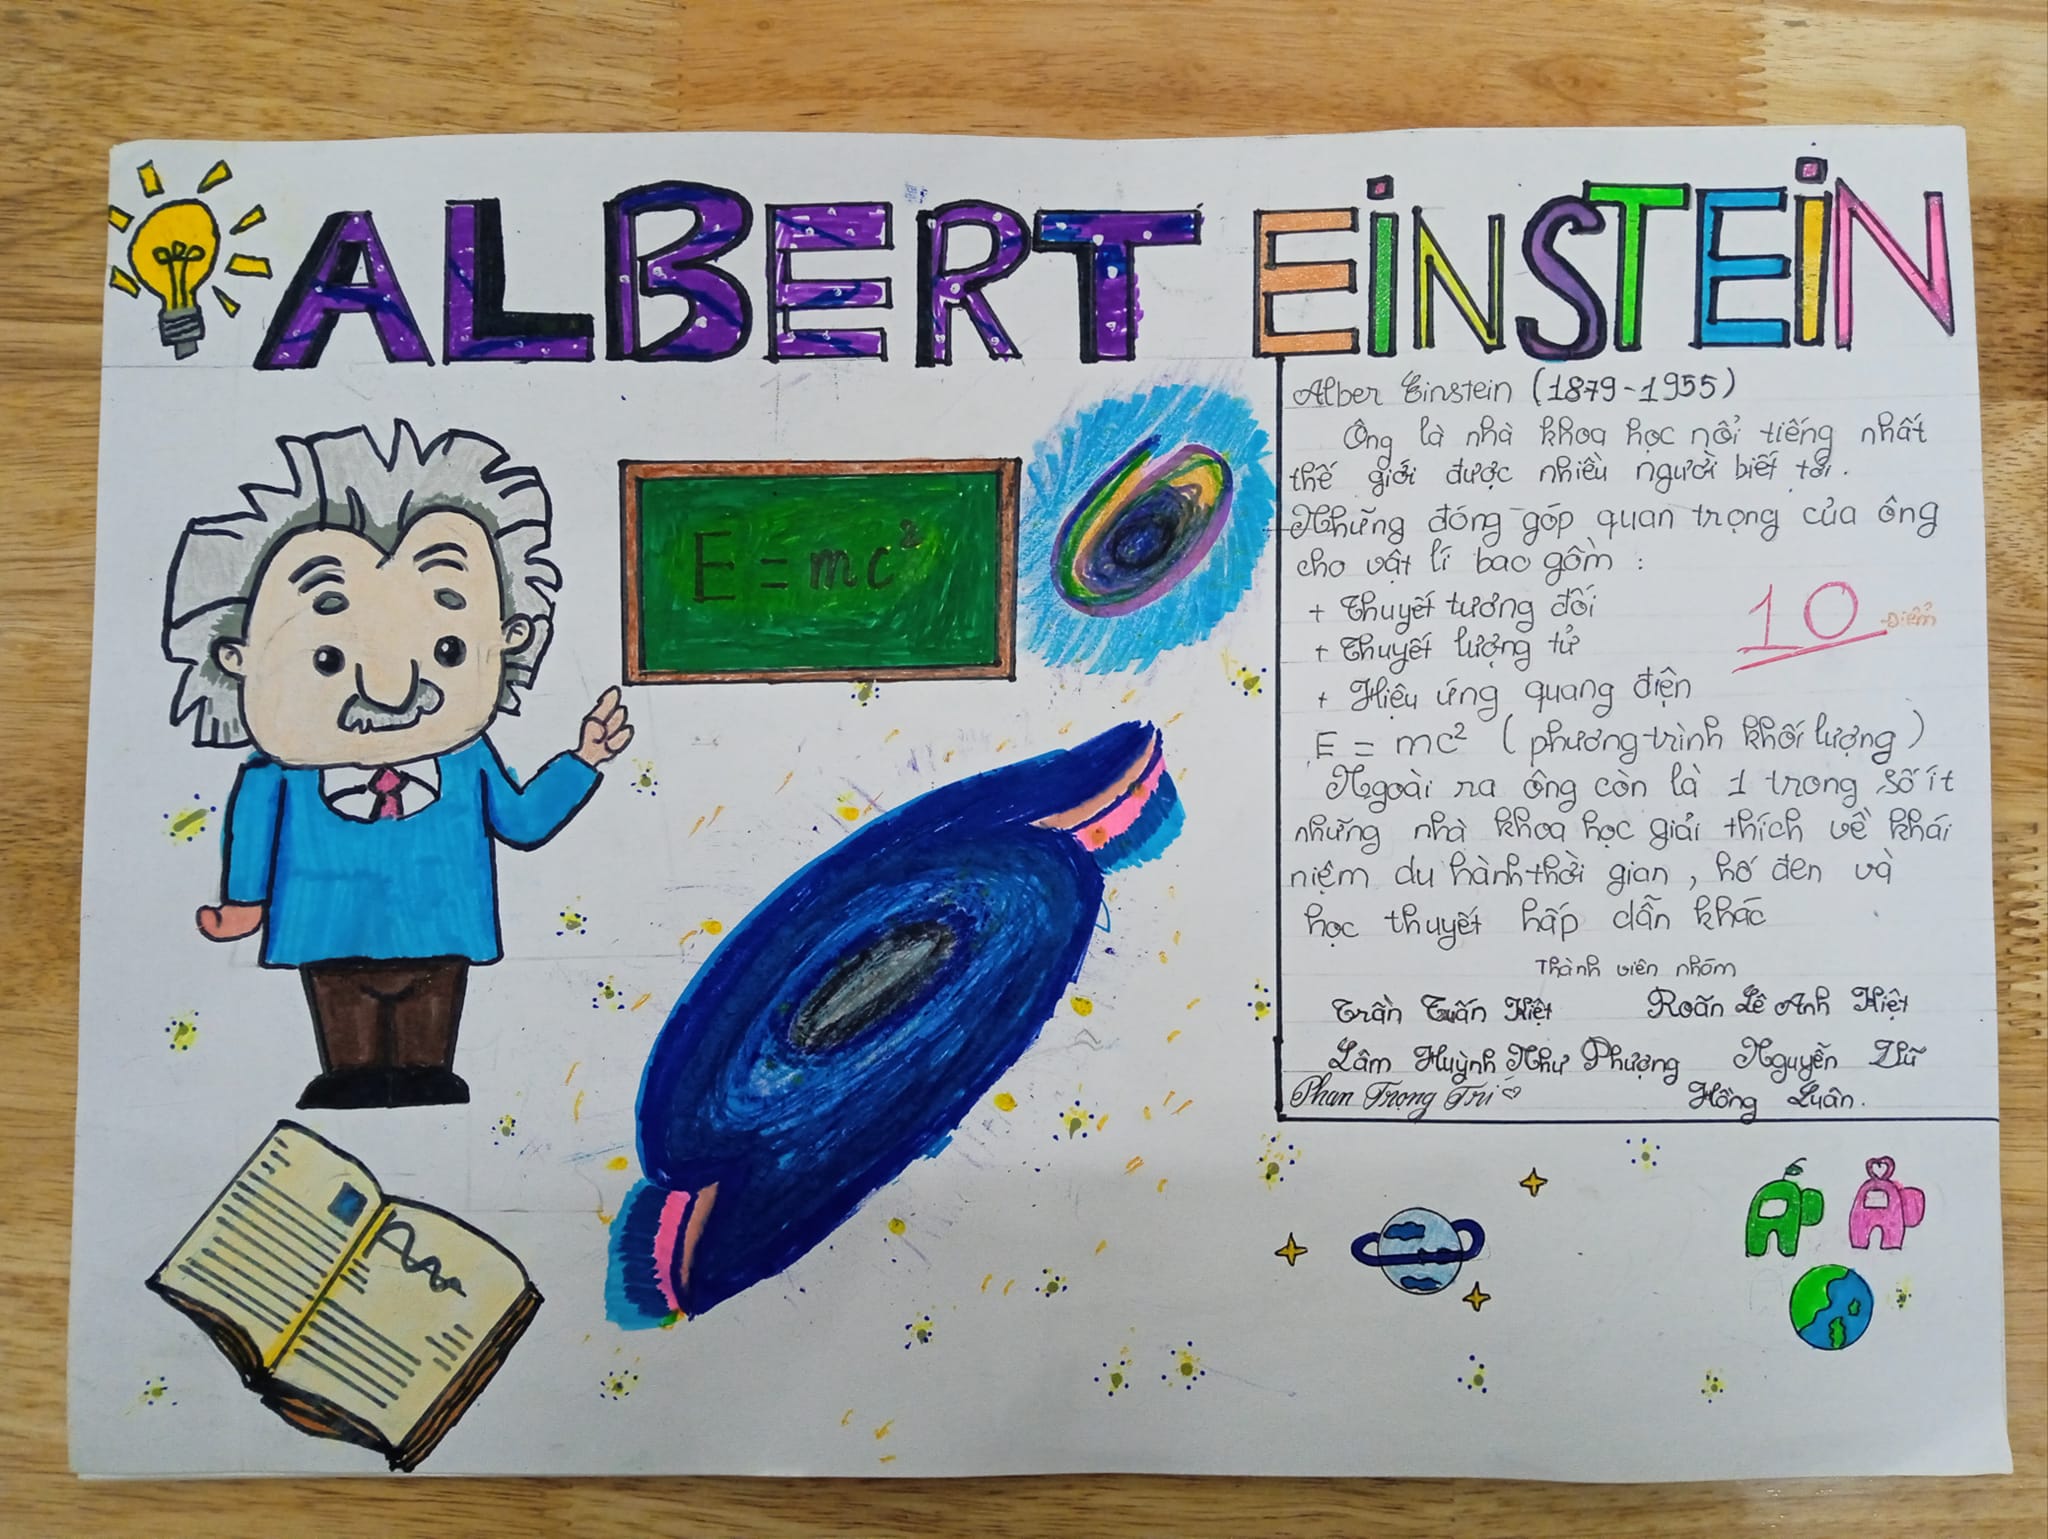 ALBERT EiNSTEiN
E = mc²
Alber Einstein (1879-1955)
Ông là nhà khoa học nổi tiếng nhất
thế giới được nhiều người biết tới.
Những đóng góp quan trọng của ông
cho vật lí bao gồm :
+ Thuyết tương đối
+ Thuyết lượng tử
+ Hiệu ứng quang điện
10 điểm
E = mc² (phương trình khối lượng)
Ngoài ra ông còn là 1 trong số ít
những nhà khoa học giải thích về khái
niệm du hành thời gian, hố đen và
học thuyết hấp dẫn khác
Thành viên nhóm
Trần Tuấn Kiệt Roãn Lê Anh Kiệt
Lâm Huỳnh Như Phượng Nguyễn Vũ
Phan Trọng Trí Hồng Luân.